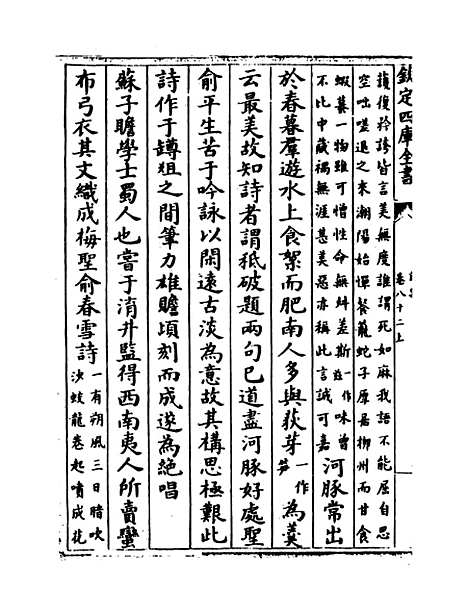 欽定四庫全書
卷八十二上
護復矜誇皆言美無度誰謂死如麻我語不能屈自思
空咄嗟退之來潮陽始憚餐籠蛇子厚居柳州而甘食
蝦蟇一物雖可憎性命無舛差斯一作兹味曾
不比中藏禍無涯甚美惡亦稱此言誠可嘉河豚常出
於春暮羣遊水上食絮而肥南人多與荻芽一作筍為羹
云最美故知詩者謂秪破題兩句已道盡河豚好處聖
俞平生苦于吟詠以閑遠古淡為意故其構思極艱此
詩作于罇俎之間筆力雄贍頃刻而成遂為絶唱
蘇子瞻學士蜀人也嘗于淯井監得西南夷人所賣蠻
布弓衣其文織成梅聖俞春雪詩一有朔風三日暗吹
沙蛟龍卷起噴成花